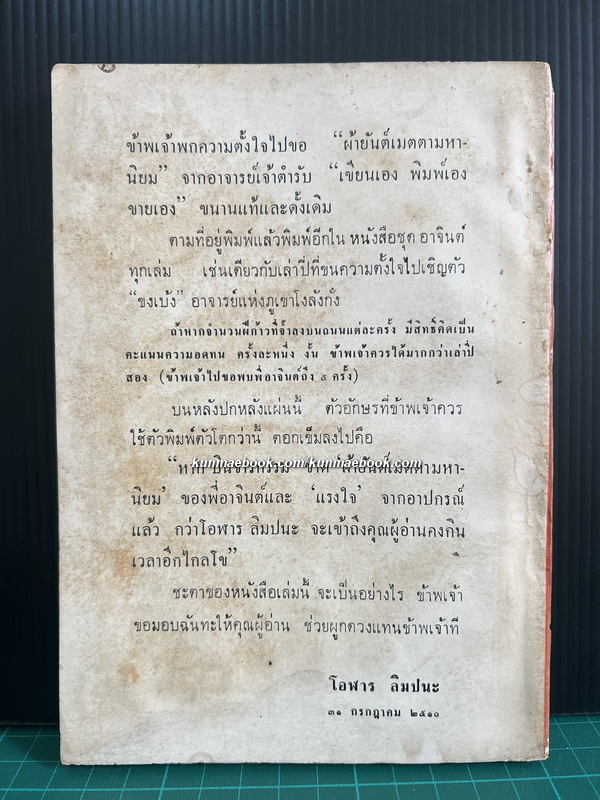 ข้าพเจ้าพกความตั้งใจไปขอ “ผ้ายันต์เมตตามหา-
นิยม” จากอาจารย์เจ้าตำรับ “เขียนเอง พิมพ์เอง
ขายเอง” ขนานแท้และดั้งเดิม
ตามที่อยู่พิมพ์แล้วพิมพ์อีกใน หนังสือชุด อาจินต์
ทุกเล่ม เช่นเดียวกับเล่าปี่ที่ขนความตั้งใจไปเชิญตัว
“ขงเบ้ง” อาจารย์แห่งภูเขาโงลังกั๋ง
ถ้าหากจำนวนฝีก้าวที่จ้ำลงบนถนนแต่ละครั้ง มีสิทธิ์คิดเป็น
คะแนนความอดทน ครั้งละหนึ่ง งั้น ข้าพเจ้าควรได้มากกว่าเล่าปี่
สอง (ข้าพเจ้าไปขอพบพี่อาจินต์ถึง ๕ ครั้ง)
บนหลังปกหลังแผ่นนี้ ตัวอักษรที่ข้าพเจ้าควร
ใช้ตัวพิมพ์ตัวโตกว่านี้ ตอกเข็มลงไปคือ
kunmaebook.com/kunmaebook.com
“หาก ขาด ‘ผ้ายันต์เมตตามหา-
นิยม’ ของพี่อาจินต์และ ‘แรงใจ’ จากอาปกรณ์
แล้ว กว่าโอฬาร ลิมปนะ จะเข้าถึงคุณผู้อ่านคงกิน
เวลาอีกไกลโข”
ชะตาของหนังสือเล่มนี้ จะเป็นอย่างไร ข้าพเจ้า
ขอมอบฉันทะให้คุณผู้อ่าน ช่วยผูกดวงแทนข้าพเจ้าที
โอฬาร ลิมปนะ
๓๑ กรกฎาคม ๒๕๑๐